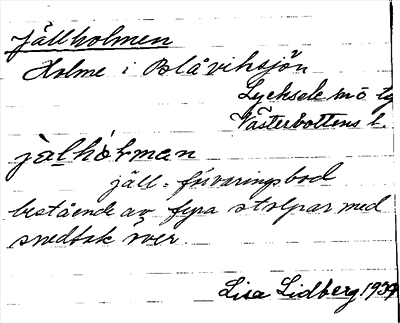 Jällholmen
Holme i Blåviksjön
Lycksele
Västerbottens l.
jälhòlman
jäll = förvaringsbod
bestående av fyra stolpar med
snedtak över.
Lisa Lidberg 1939